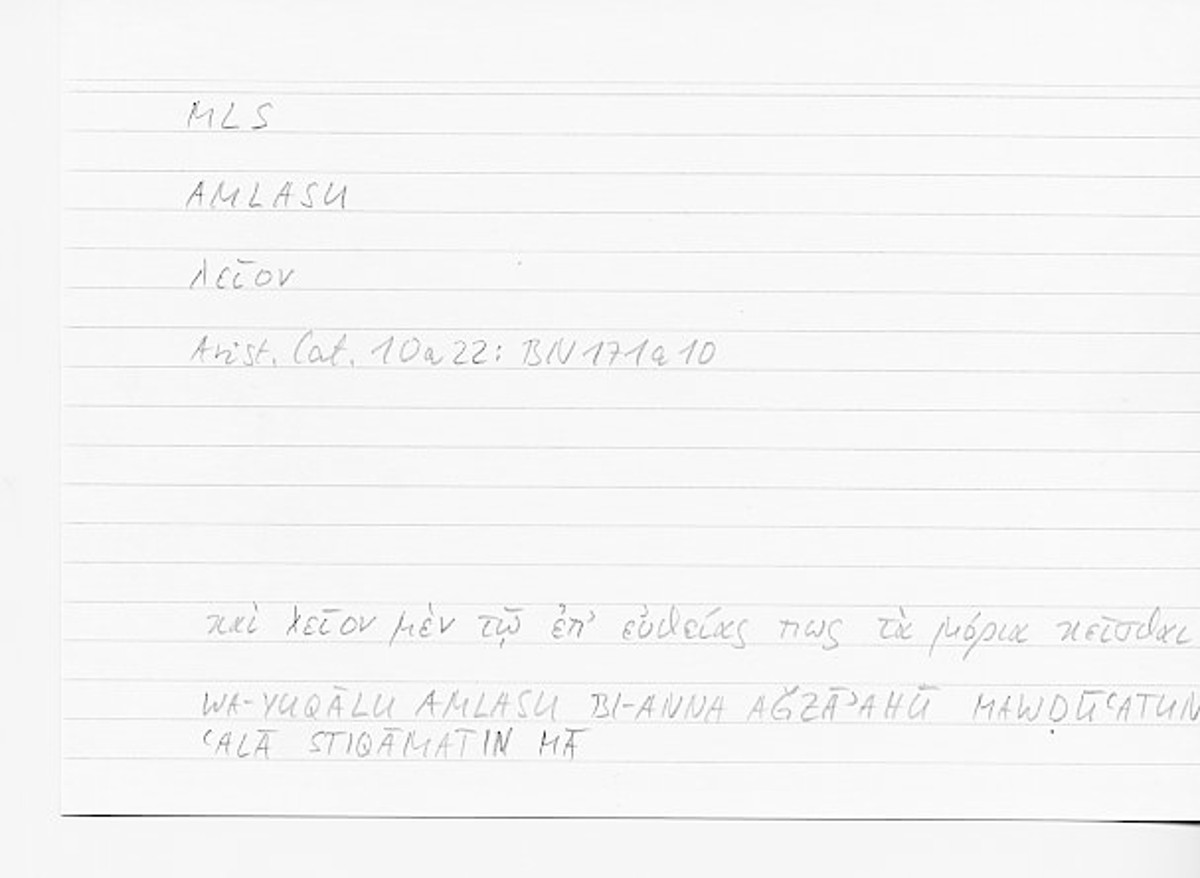 MLS
AMLASU
λεῖον
Arist. Cat. 10a22: BN 171a10
καὶ λεῖον μὲν τῷ ἐπ' εὐθείας πως τὰ μόρια κεῖσθαι
WA-YUQĀLU AMLASU BI-ANNA AǦZĀʾAHŪ MAWḌŪʿATUN
ʿALĀ STIQĀMATIN MĀ